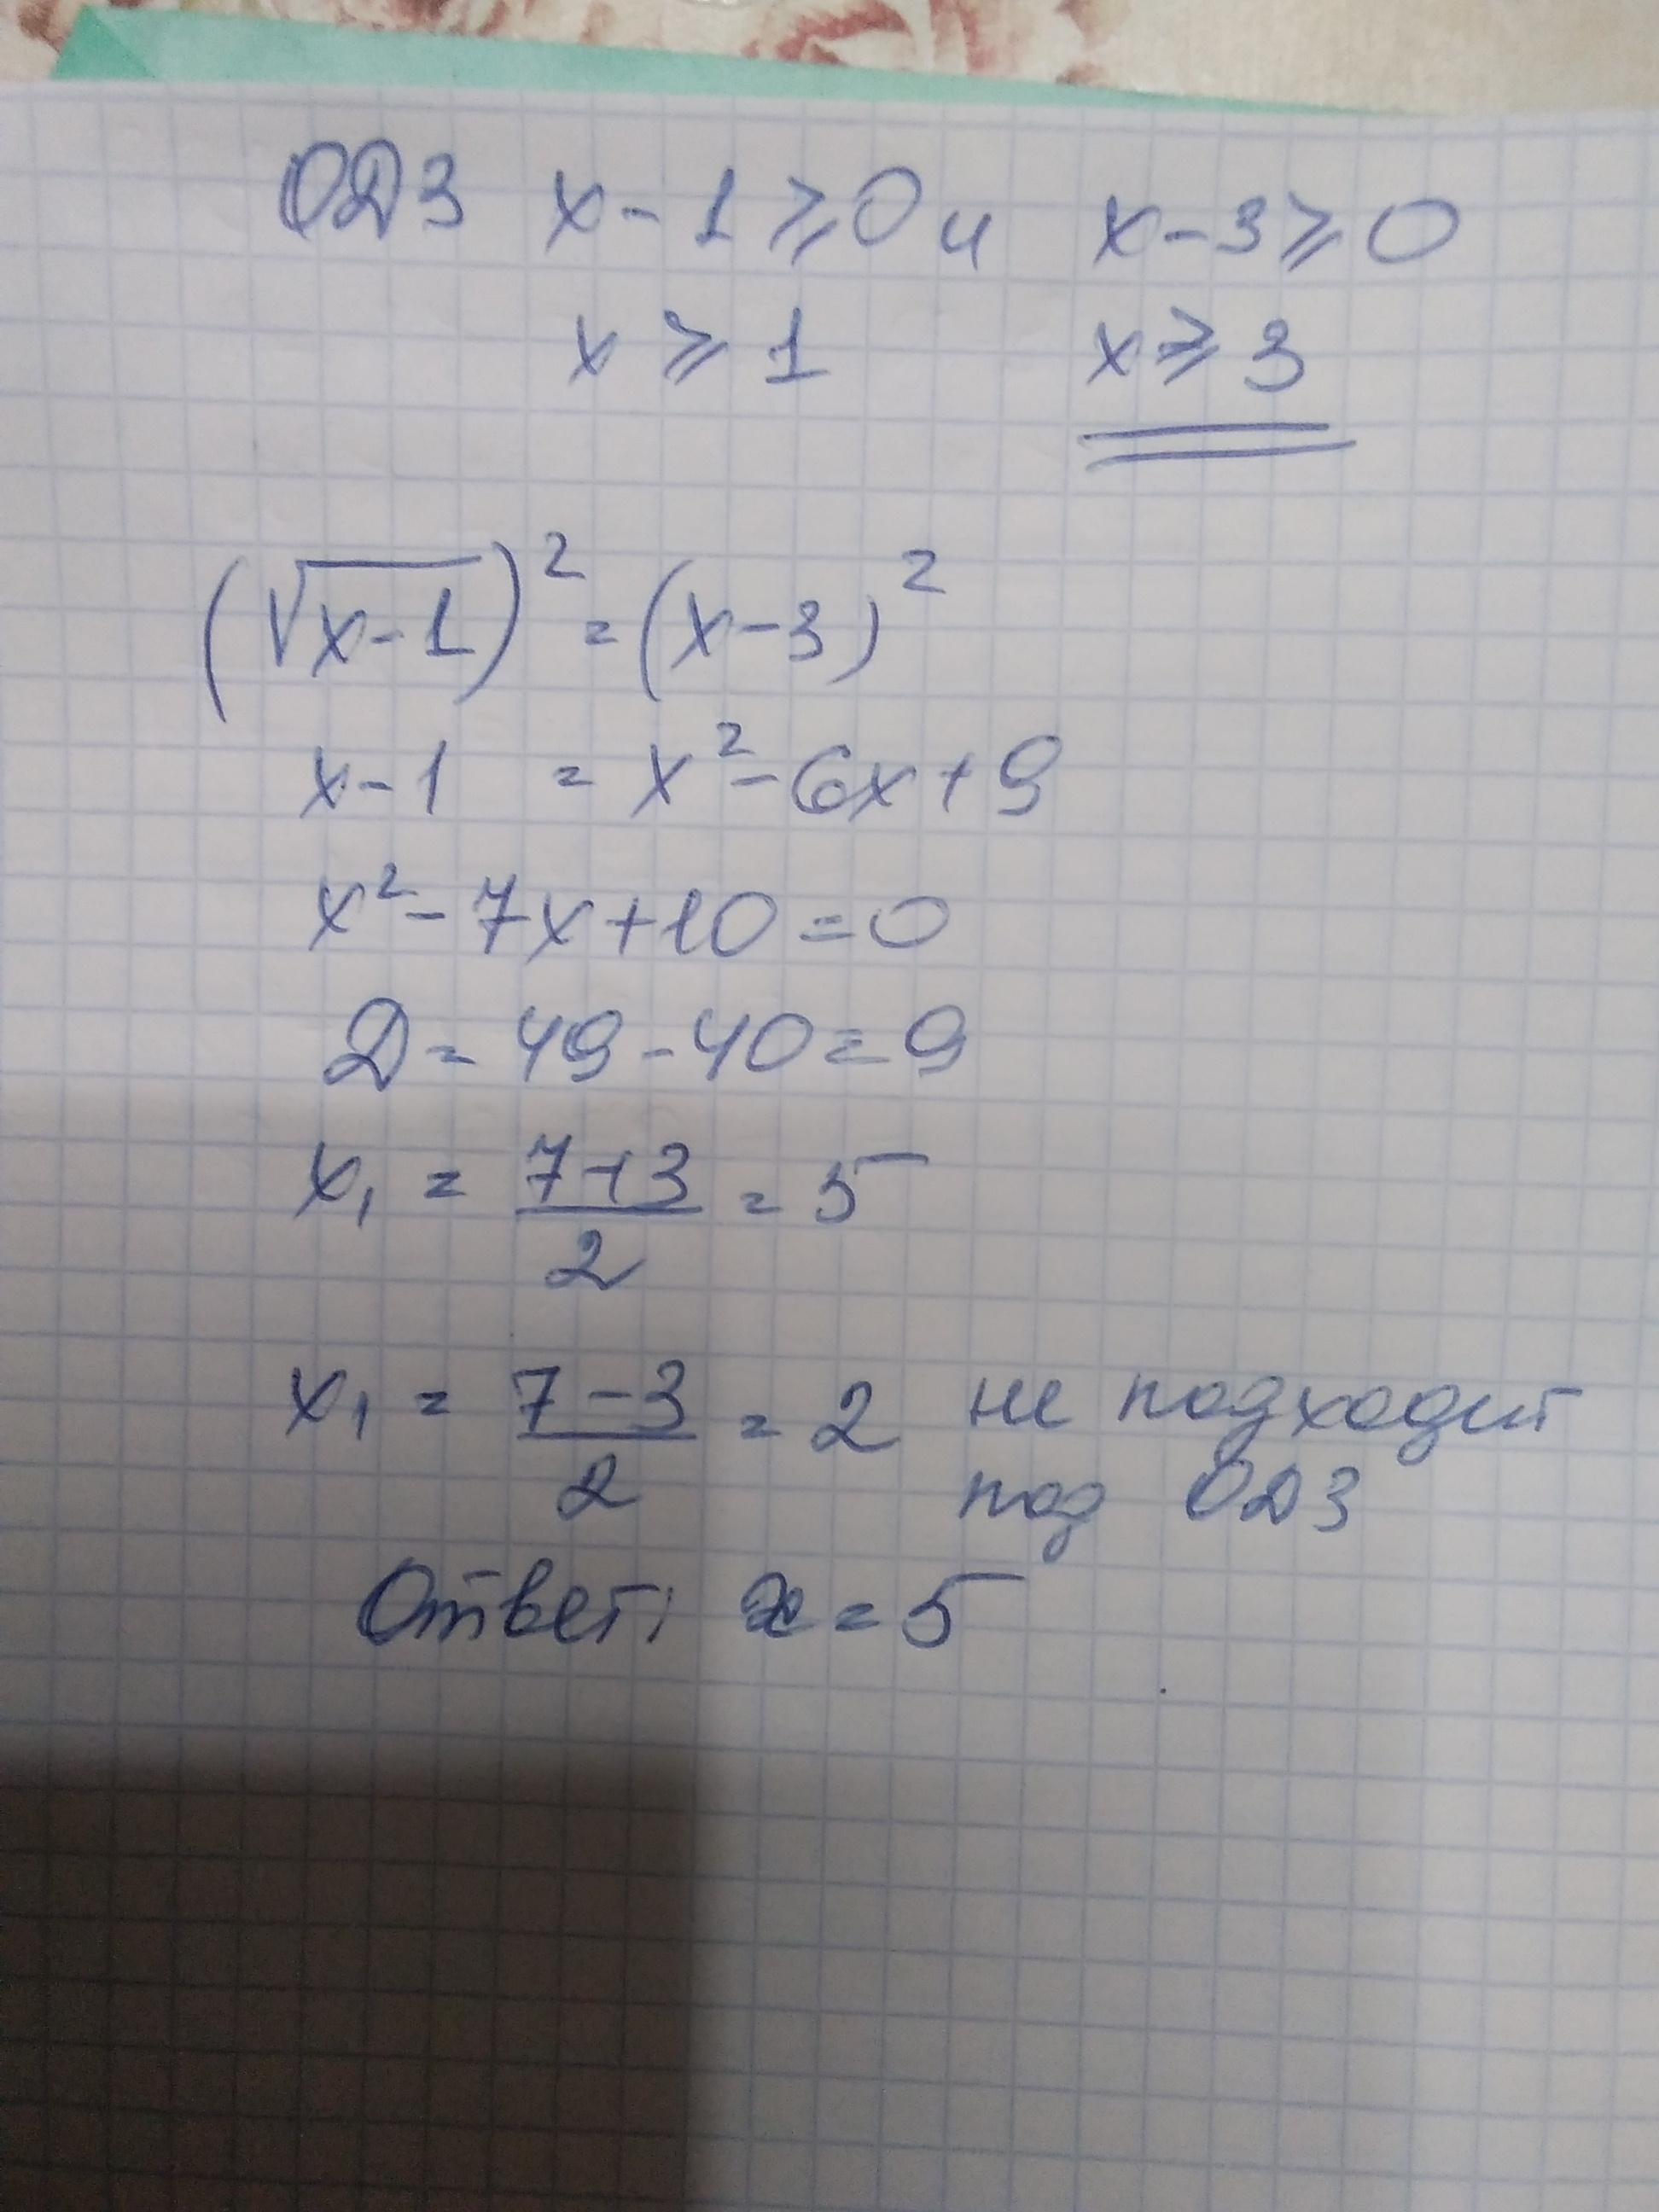 ОДЗ x-1⩾0 и x-3⩾0
x⩾1 x⩾3
(√(x-1))² = (x-3)²
x-1 = x²-6x+9
x²-7x+10=0
D=49-40=9
x₁ = (7+3)/2 = 5
x₁ = (7-3)/2 = 2 не подходит
под ОДЗ
Ответ: x=5